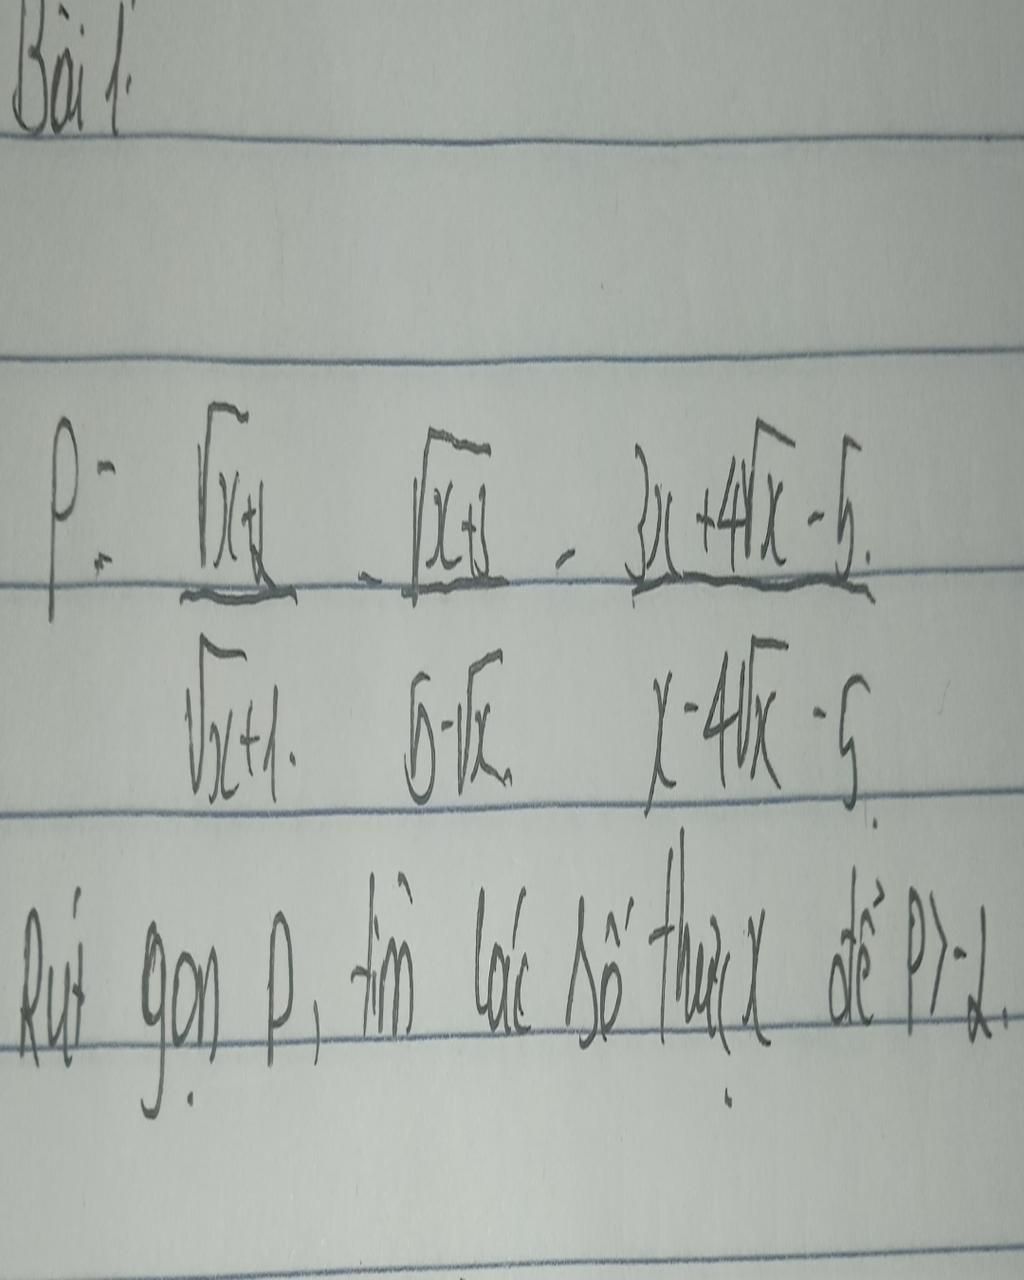 Bài 1.
P = \frac{\sqrt{x}+2}{\sqrt{x}+1.} - \frac{\sqrt{x}+3}{5-\sqrt{x}} - \frac{3x+4\sqrt{x}-5.}{x-4\sqrt{x}-5.}
Rút gọn P, tìm các số thực x để P>-2.